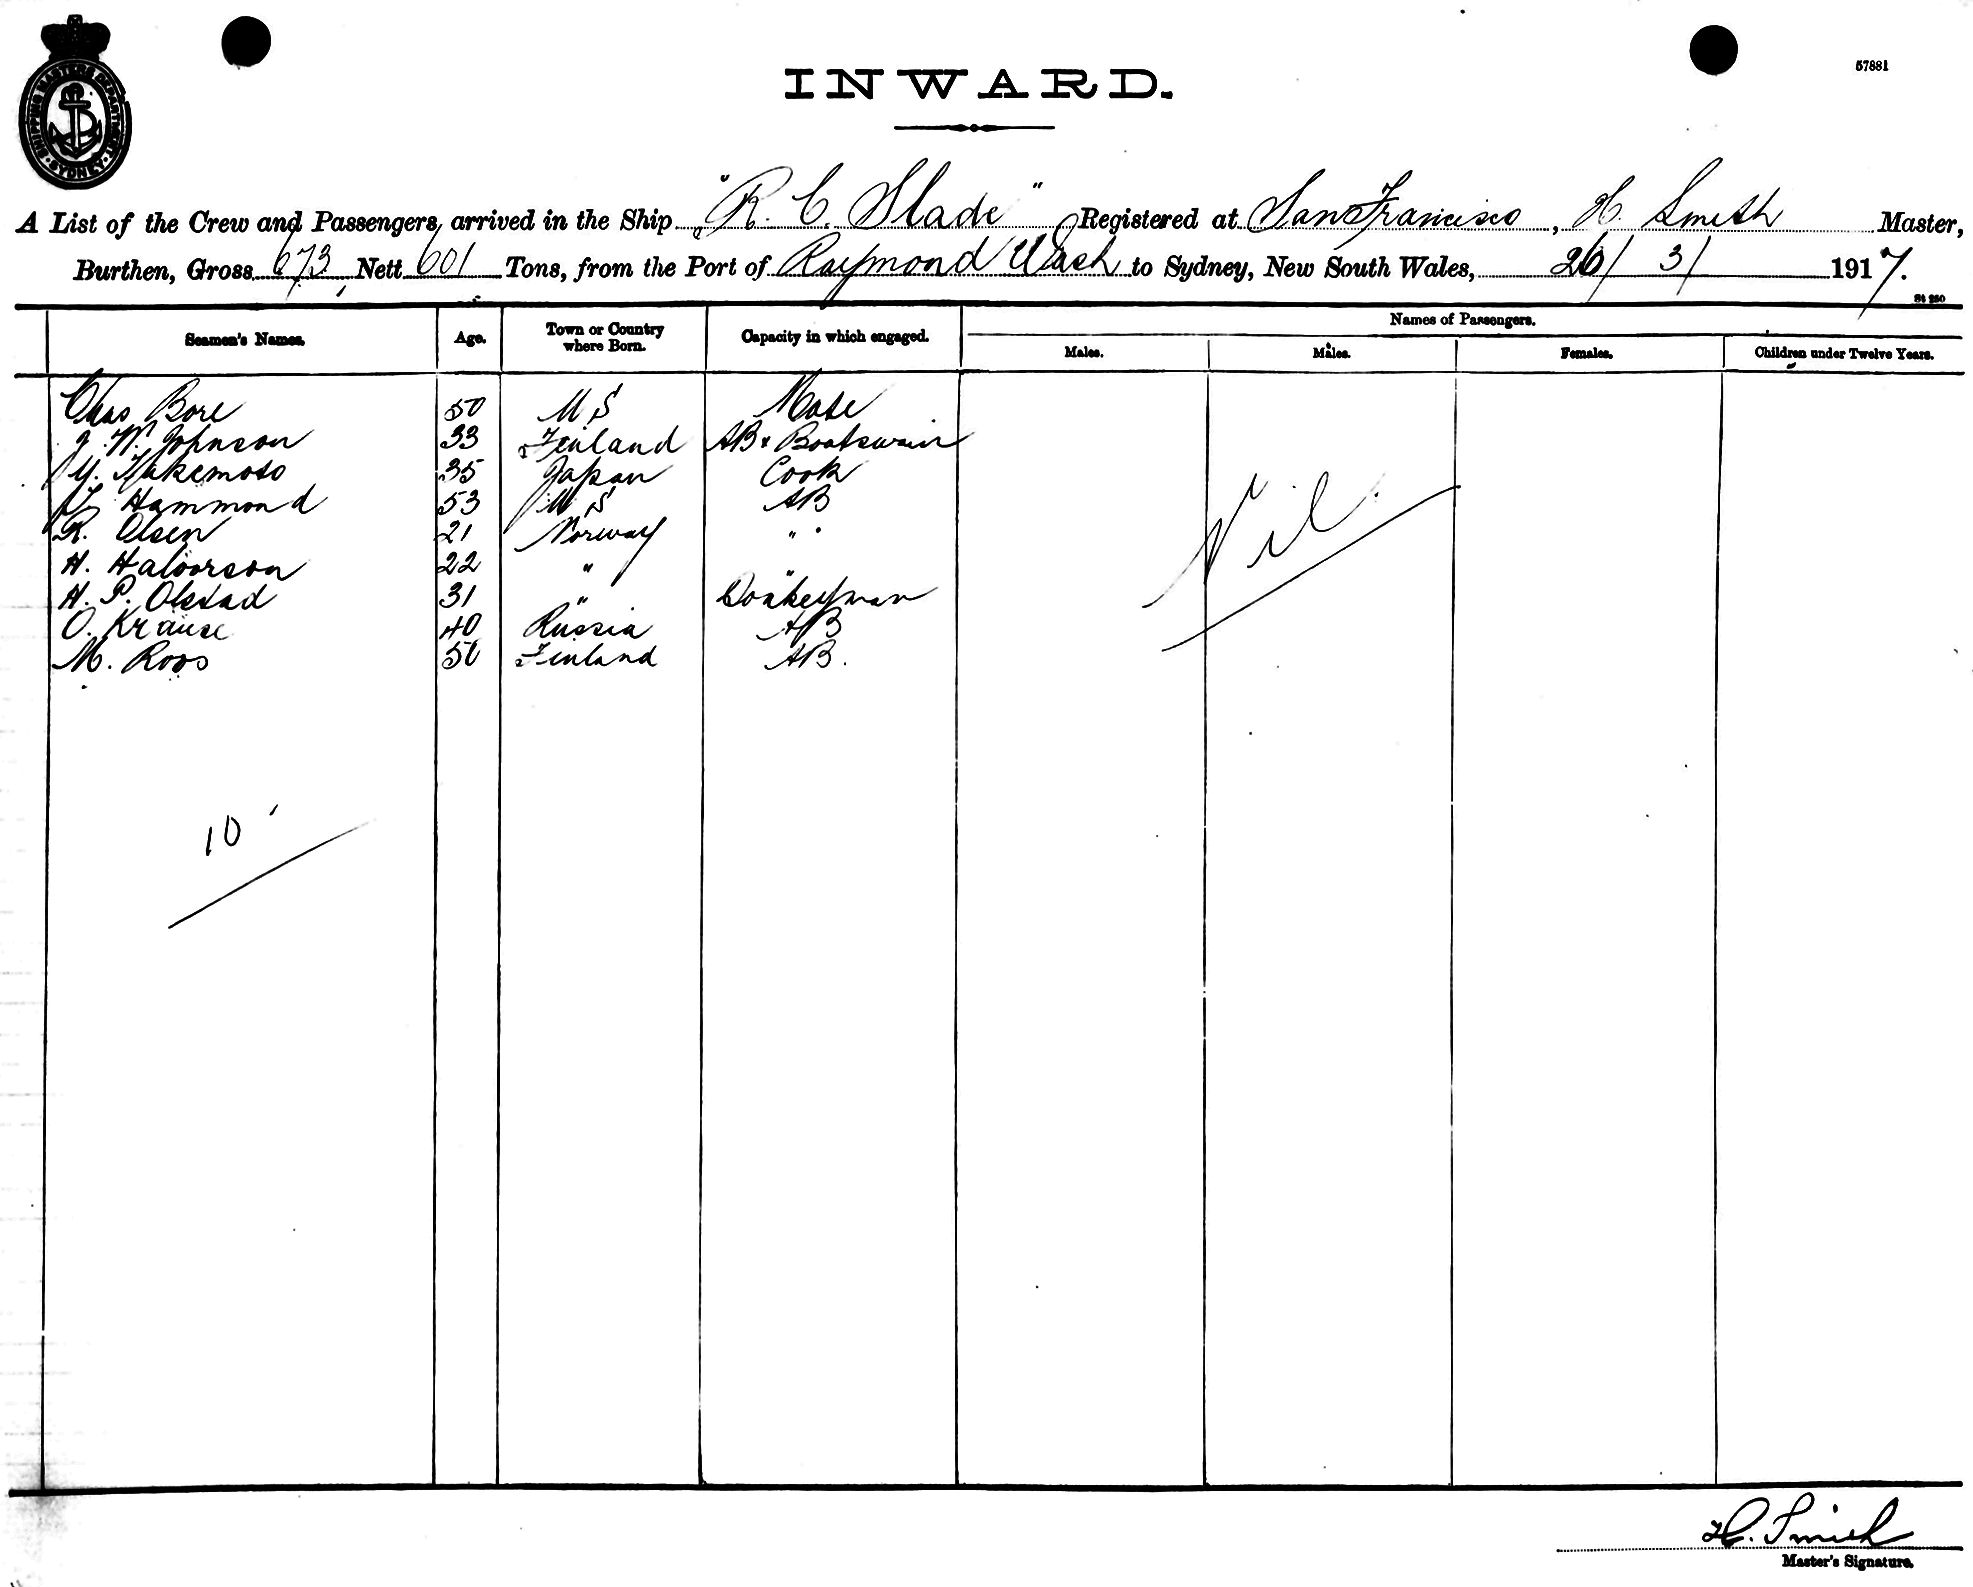 SHIPPING MASTERS DEPARTMENT · SYDNEY ·
INWARD.
57881
A List of the Crew and Passengers, arrived in the Ship "R. C. Slade" Registered at San Francisco, H. Smith Master,
Burthen, Gross 673 Nett 601 Tons, from the Port of Raymond Wash to Sydney, New South Wales, 26/3/1917.
St 250
Seamen's Names. Age. Town or Country where Born. Capacity in which engaged. Names of Passengers.
Males. Males. Females. Children under Twelve Years.
Chas Bore 50 U S Mate
J. W. Johnson 33 Finland AB & Boatswain
Y. Takemoto 35 Japan Cook
Hammond 53 U S AB
R. Olsen 21 Norway "
H. Halvorson 22 " "
H. P. Olstad 31 " Donkeyman
O. Krause 40 Russia AB
M. Roos 50 Finland AB.
Nil.
10
H. Smith
Master's Signature.